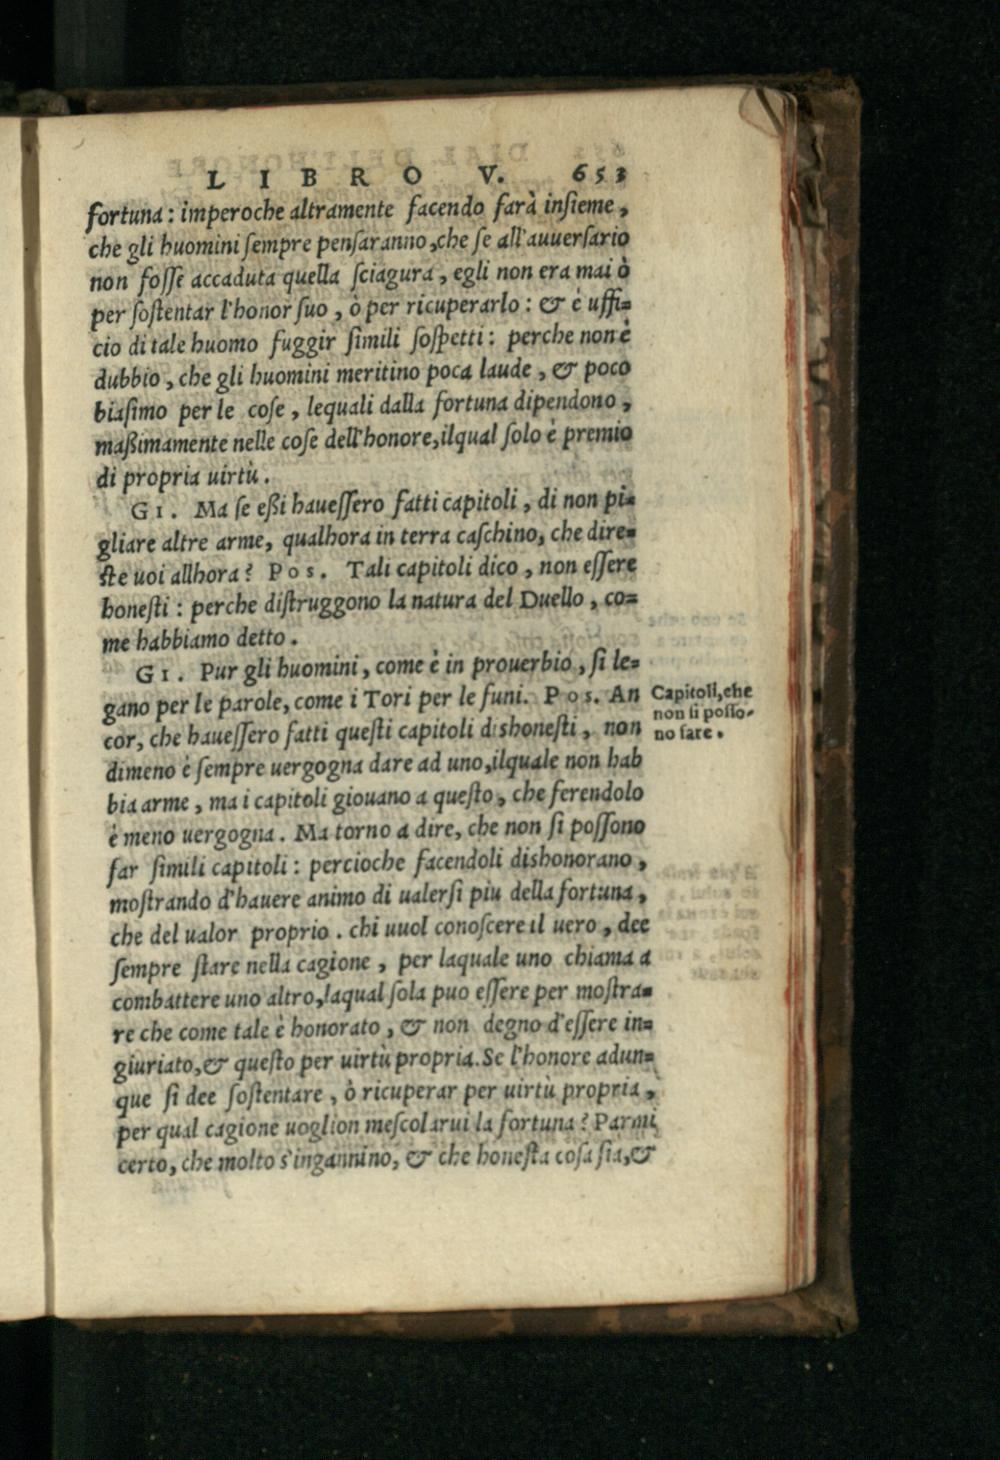 LIBRO V. 653
fortuna: imperoche altramente facendo farà inſieme,
che gli huomini ſempre penſaranno, che ſe all'auuerſario
non foſſe accaduta quella ſciagura, egli non era mai ò
per ſoſtentar l'honor ſuo, ò per ricuperarlo: & è uffi=
cio di tale huomo fuggir ſimili ſoſpetti: perche non è
dubbio, che gli huomini meritino poca laude, & poco
biaſimo per le coſe, lequali dalla fortuna dipendono,
maßimamente nelle coſe dell'honore, ilqual ſolo è premio
di propria uirtù.
GI. Ma ſe eßi haueſſero fatti capitoli, di non pi=
gliare altre arme, qualhora in terra caſchino, che dire=
ſte uoi allhora? Pos. Tali capitoli dico, non eſſere
honeſti: perche diſtruggono la natura del Duello, co=
me habbiamo detto.
GI. Pur gli huomini, come è in prouerbio, ſi le=
gano per le parole, come i Tori per le funi. Pos. An
cor, che haueſſero fatti queſti capitoli dishoneſti, non
dimeno è ſempre uergogna dare ad uno, ilquale non hab
bia arme, ma i capitoli giouano a queſto, che ferendolo
è meno uergogna. Ma torno a dire, che non ſi poſſono
far ſimili capitoli: percioche facendoli dishonorano,
moſtrando d'hauere animo di ualerſi più della fortuna,
che del ualor proprio. chi uuol conoſcere il uero, dee
ſempre ſtare nella cagione, per laquale uno chiama a
combattere uno altro, laqual ſola puo eſſere per moſtra=
re che come tale è honorato, & non degno d'eſſere in=
giuriato, & queſto per uirtù propria. Se l'honore adun=
que ſi dee ſoſtentare, ò ricuperar per uirtù propria,
per qual cagione uoglion meſcolarui la fortuna? Parmi
certo, che molto s'ingannino, & che honeſta coſa ſia, &
Capitoli, che
non ſi poſſo-
no fare.